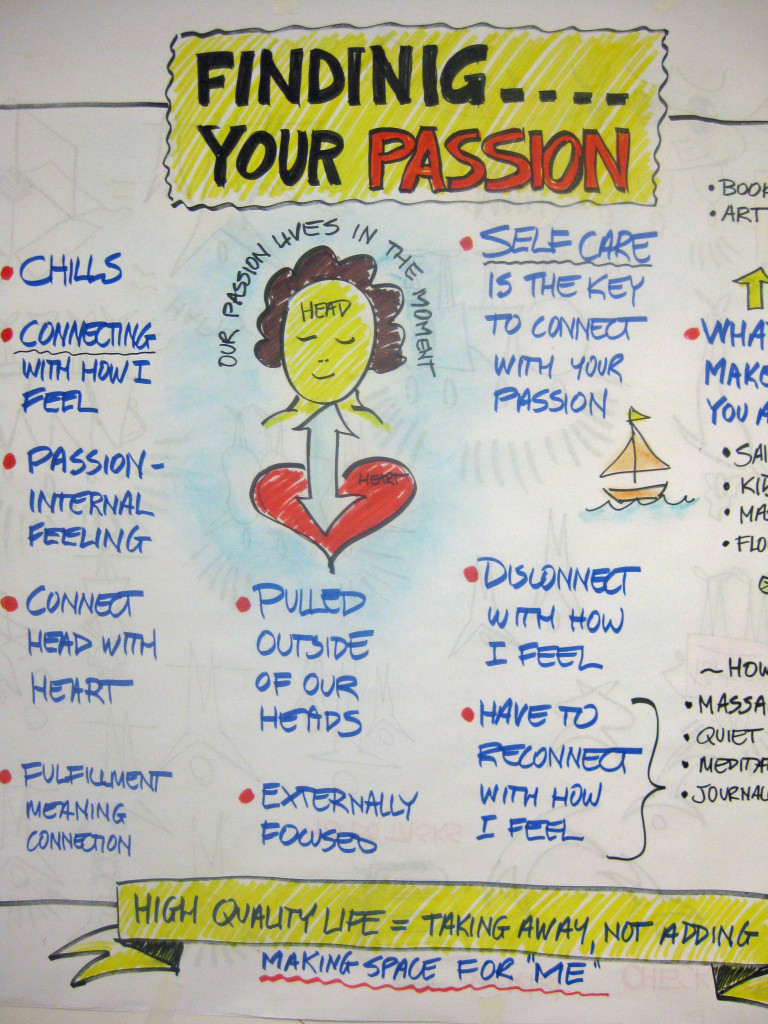 FINDINIG....
YOUR PASSION
OUR PASSION LIVES IN THE MOMENT
HEAD
HEART
• CHILLS
• CONNECTING
WITH HOW I
FEEL
• PASSION-
INTERNAL
FEELING
• CONNECT
HEAD WITH
HEART
• FULFILLMENT
MEANING
CONNECTION
• PULLED
OUTSIDE
OF OUR
HEADS
• EXTERNALLY
FOCUSED
• SELF CARE
IS THE KEY
TO CONNECT
WITH YOUR
PASSION
• DISCONNECT
WITH HOW
I FEEL
• HAVE TO
RECONNECT
WITH HOW
I FEEL
• BOOK
• ART
• WHAT
MAKE
YOU A
• SAI
• KID
• MA
• FLO
~ HOW
• MASSA
• QUIET
• MEDITA
• JOURNAL
HIGH QUALITY LIFE = TAKING AWAY, NOT ADDING
MAKING SPACE FOR "ME"